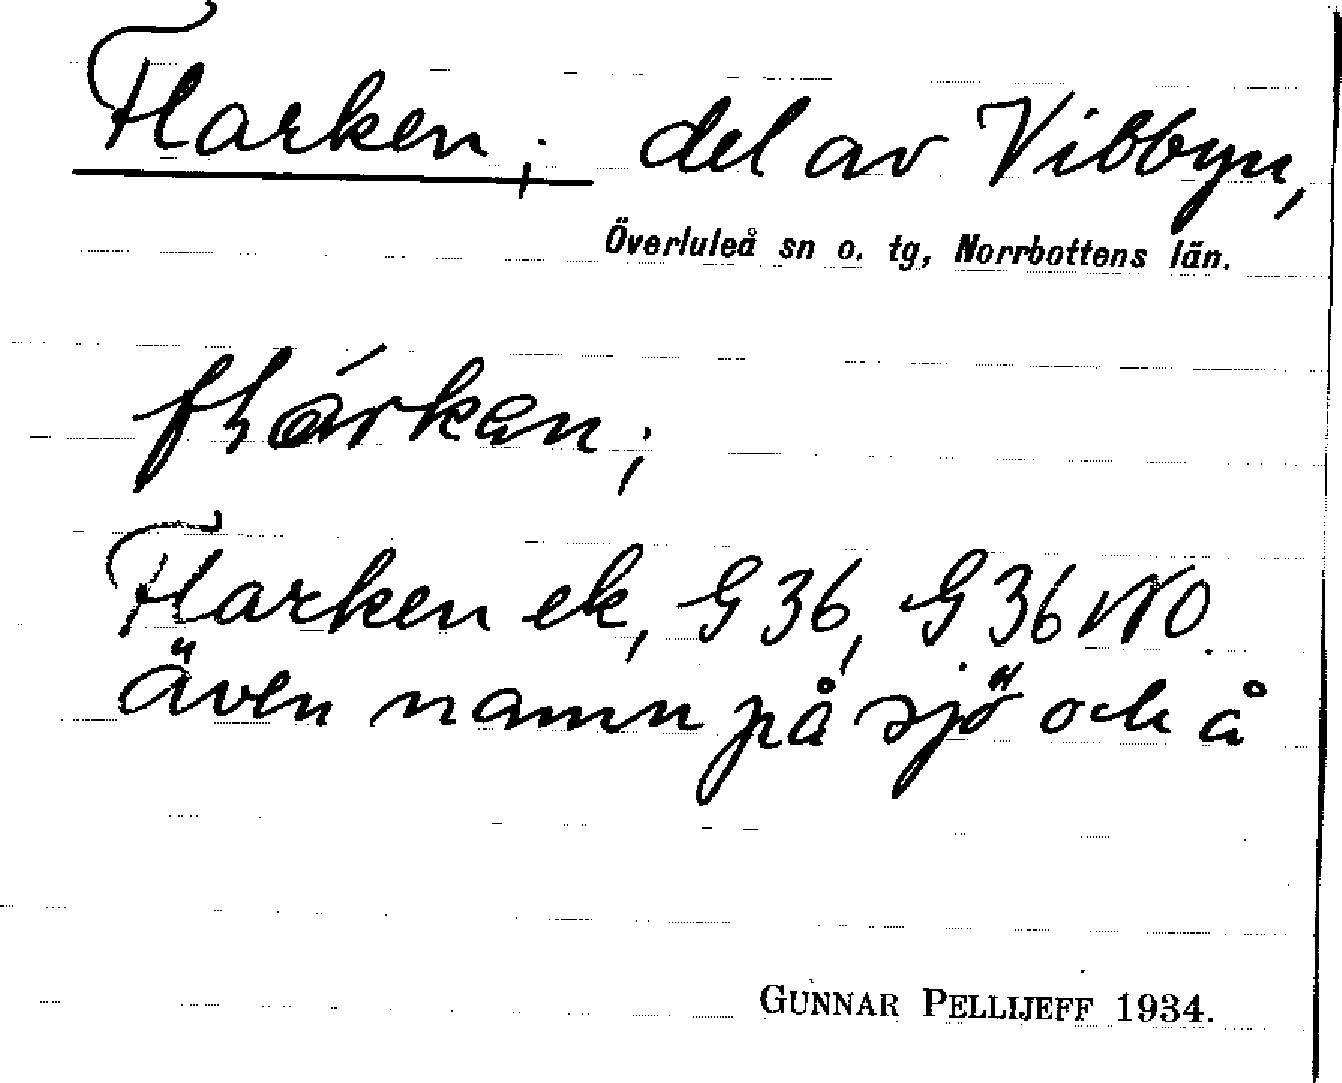 Flarken; del av Vibbyn,
Överluleå sn o. tg, Norrbottens län.
Flarken ek, G 36, G 36 NO.
även namn på sjö och å
GUNNAR PELLIJEFF 1934.